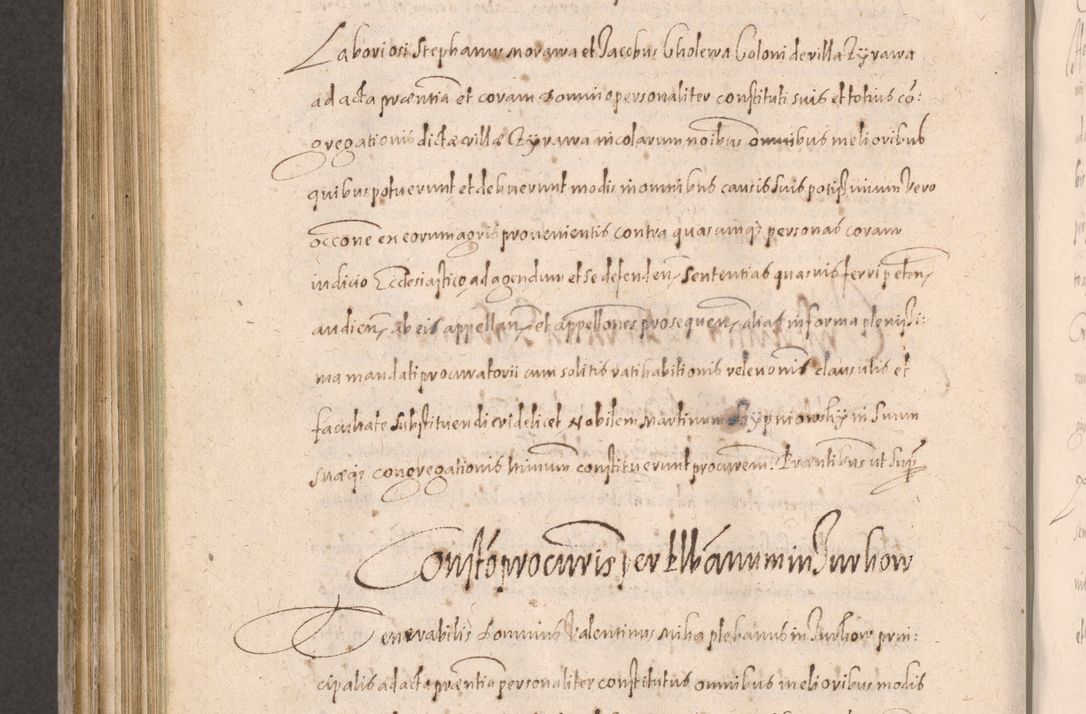 Laboriosi Stephanus Morawa et Jacobus Cholewa Coloni de villa Zyrawa
ad acta præntia et coram domino personaliter constituti suis et totius cō:
gregationis dictæ villæ Zyrawa incolarum noibus omnibus melioribus
quibus potuerunt et debuerunt modis in omnibus causis suis potissimum vero
occone en eorum agris provenientis contra quascunq; personas coram
iudicio Ecclesiastico ad agendum et se defenden, sententias quasvis ferri peten,
audien, ab eis appellan, et appellones prosequen, alias in forma plenissi:
ma mandati procuratorii cum solitis ratihabitionis relevonis clausulis et
facultate substituendi videlicet Nobilem Martinum Rypniowsky in suum
suæq; congregationis ltimum constituerunt procurem. Præntibus ut supr
Constō procuris per Plbanum in Jurkow
Venerabilis dominus Valentinus Miko plebanus in Jurkow prin:
cipalis ad acta præntia personaliter constitutus omnibus melioribus modis